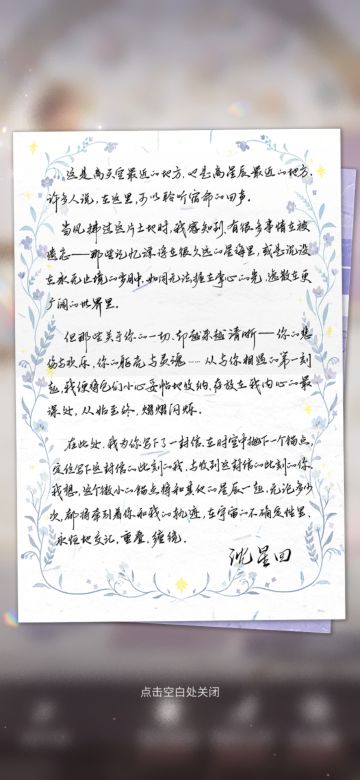 这是离天空最近的地方，也是离星辰最近的地方，
许多人说，在这里，可以聆听宿命的回声。
当风拂过这片土地时，我感知到，有很多事情在被
遗忘——那些记忆漂流在很久远的星海里，或是沉没
在永无止境的岁月中，如同无法握在掌心的光，逸散在更
广阔的世界里。
但那些关于你的一切，却越来越清晰——你的悲
伤与欢乐，你的躯壳与灵魂……从与你相遇的第一刻
起，我便将它们小心妥帖地收纳，存放在我内心的最
深处，从始至终，熠熠闪烁。
在此处，我为你写下了一封信，在时空中抛下一个锚点，
定位写下这封信的此刻的我，与收到这封信的此刻的你。
我想，这个微小的锚点将和其他的星辰一起，无论多少
次，都将牵引着你和我的轨迹，在宇宙的不确定性里，
永恒地交汇，重叠，缠绕。
沈星回
点击空白处关闭